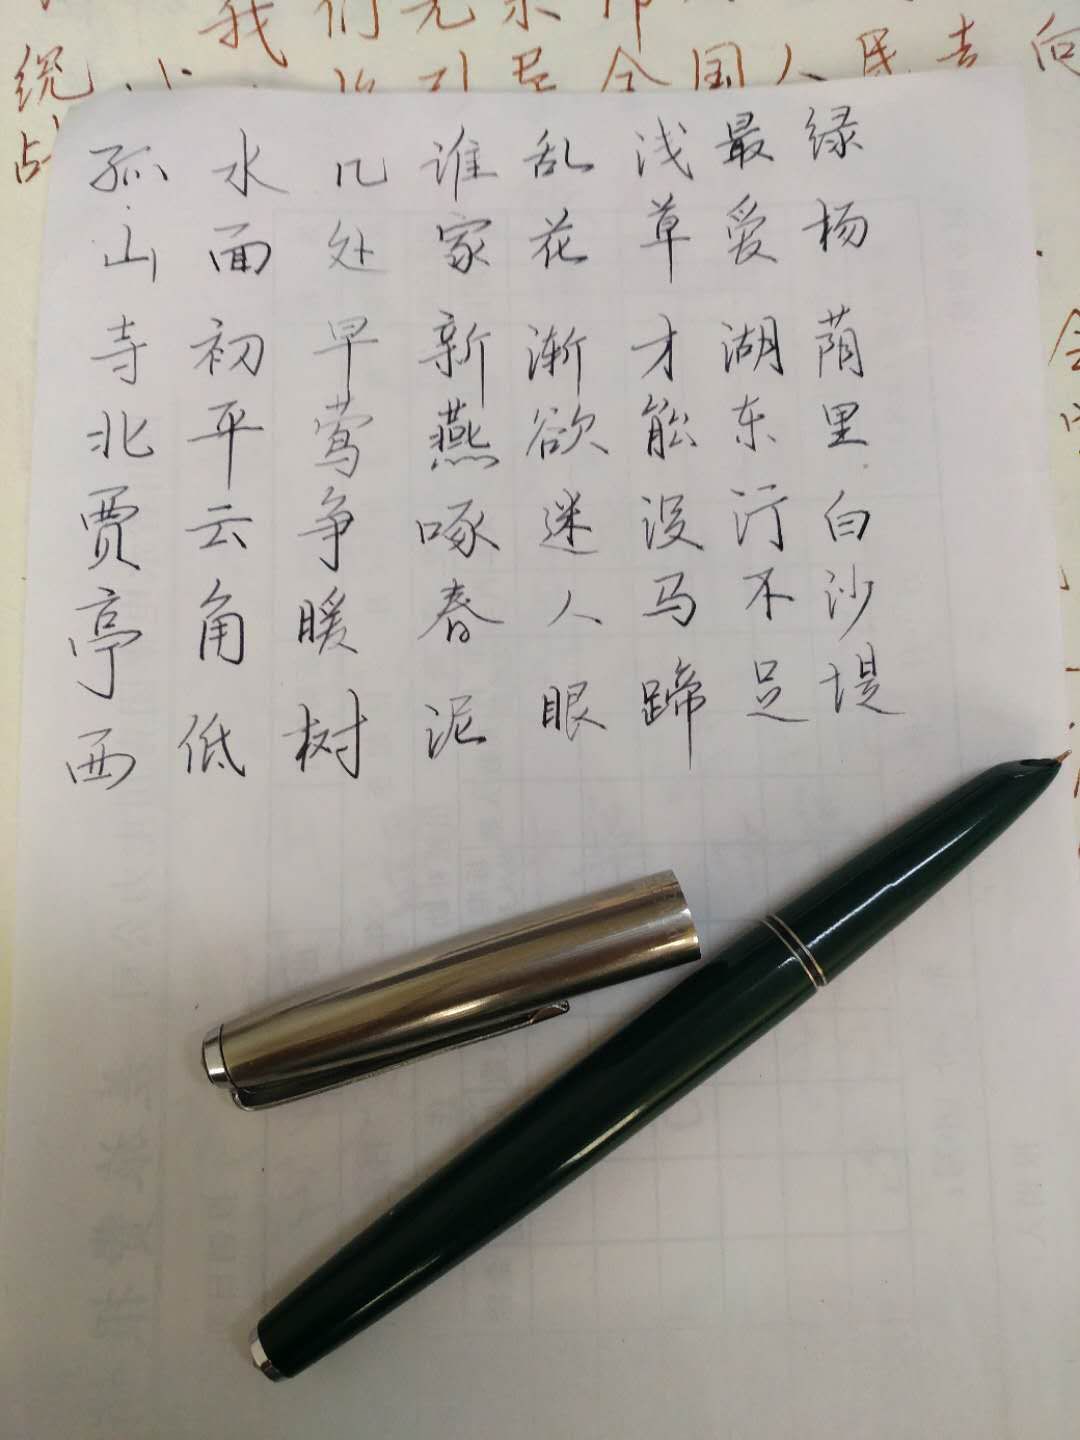 孤山寺北贾亭西
水面初平云角低
几处早莺争暖树
谁家新燕啄春泥
乱花渐欲迷人眼
浅草才能没马蹄
最爱湖东行不足
绿杨荫里白沙堤
我们
统
引导全国人民去向
战